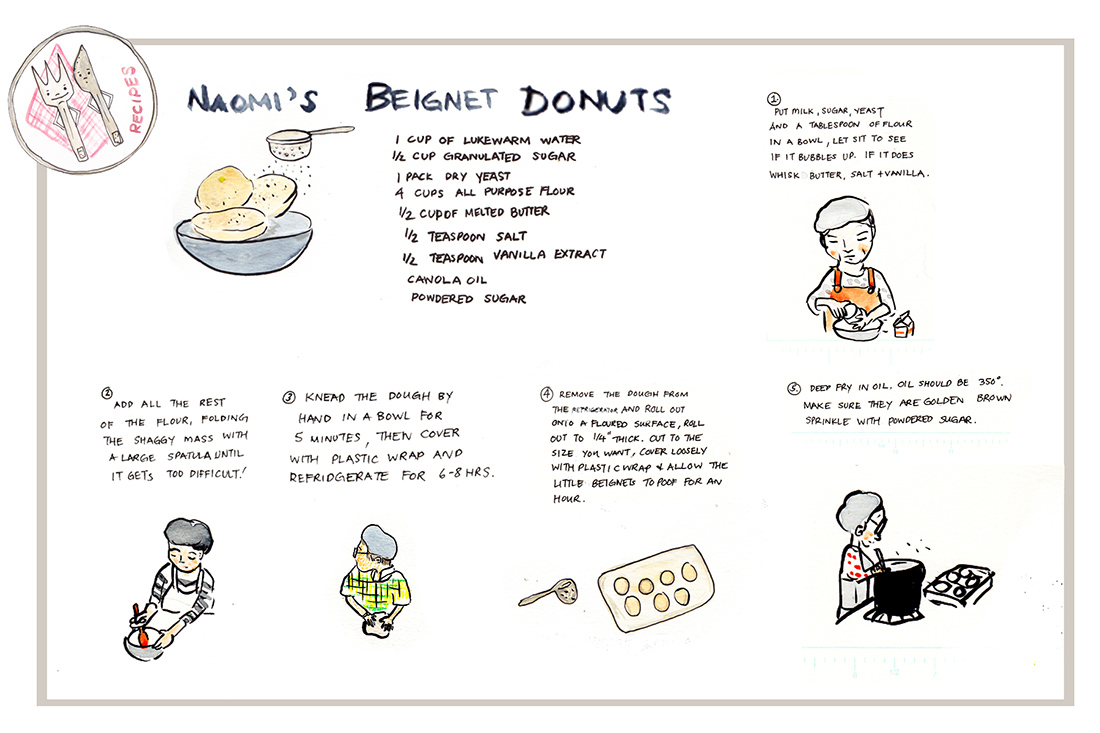 RECIPES
NAOMI'S BEIGNET DONUTS
1 CUP OF LUKEWARM WATER
1/2 CUP GRANULATED SUGAR
1 PACK DRY YEAST
4 CUPS ALL PURPOSE FLOUR
1/2 CUP OF MELTED BUTTER
1/2 TEASPOON SALT
1/2 TEASPOON VANILLA EXTRACT
CANOLA OIL
POWDERED SUGAR
①
PUT MILK, SUGAR, YEAST
AND A TABLESPOON OF FLOUR
IN A BOWL, LET SIT TO SEE
IF IT BUBBLES UP. IF IT DOES
WHISK BUTTER, SALT + VANILLA.
②
ADD ALL THE REST
OF THE FLOUR, FOLDING
THE SHAGGY MASS WITH
A LARGE SPATULA UNTIL
IT GETS TOO DIFFICULT!
③ KNEAD THE DOUGH BY
HAND IN A BOWL FOR
5 MINUTES, THEN COVER
WITH PLASTIC WRAP AND
REFRIDGERATE FOR 6-8 HRS.
④ REMOVE THE DOUGH FROM
THE REFRIGERATOR AND ROLL OUT
ONTO A FLOURED SURFACE, ROLL
OUT TO 1/4" THICK. CUT TO THE
SIZE YOU WANT, COVER LOOSELY
WITH PLASTIC WRAP & ALLOW THE
LITTLE BEIGNETS TO POOF FOR AN
HOUR.
⑤. DEEP FRY IN OIL. OIL SHOULD BE 350°.
MAKE SURE THEY ARE GOLDEN BROWN
SPRINKLE WITH POWDERED SUGAR.